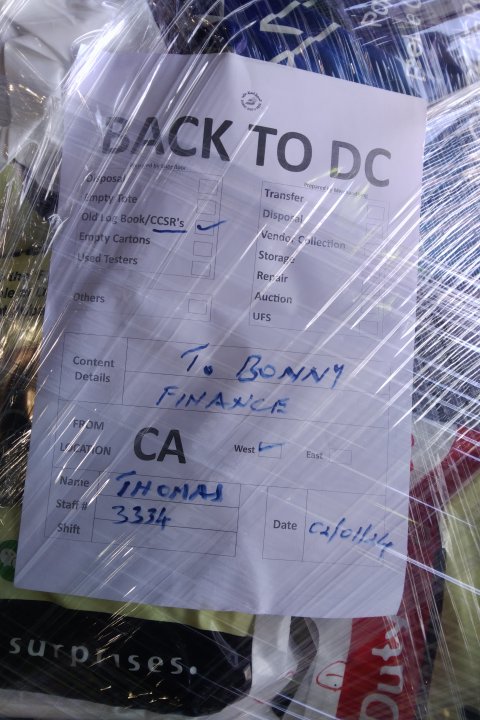 BACK TO DC
Prepared by
Disposal
Empty Tote
Old Log Book/CCSR's ✓
Empty Cartons
Used Testers
Others
Prepared by
Transfer
Disposal
Vendor Collection
Storage
Repair
Auction
UFS
Content Details
T. BONNY
FINANCE
FROM LOCATION
CA
West ✓ East
Name THOMAS
Staff # 3334
Shift
Date 02/01/14
surprises.